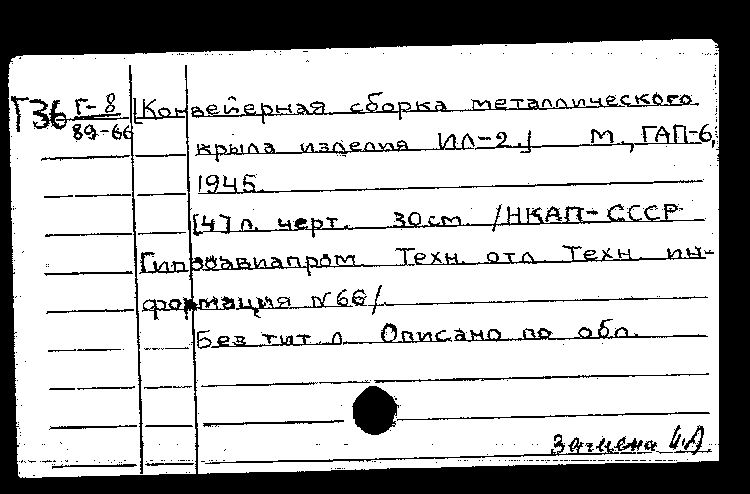 Г36 Г-8 [Конвейерная сборка металлического
89-66
крыла изделия ИЛ-2.] М., ГАП-6,
1945.
[4] л. черт. 30 см. /НКАП-СССР
Гипроавиапром. Техн. отл. Техн. ин-
формация N 66/.
Без тит. л. Описано по обл.
Замена И.Л.